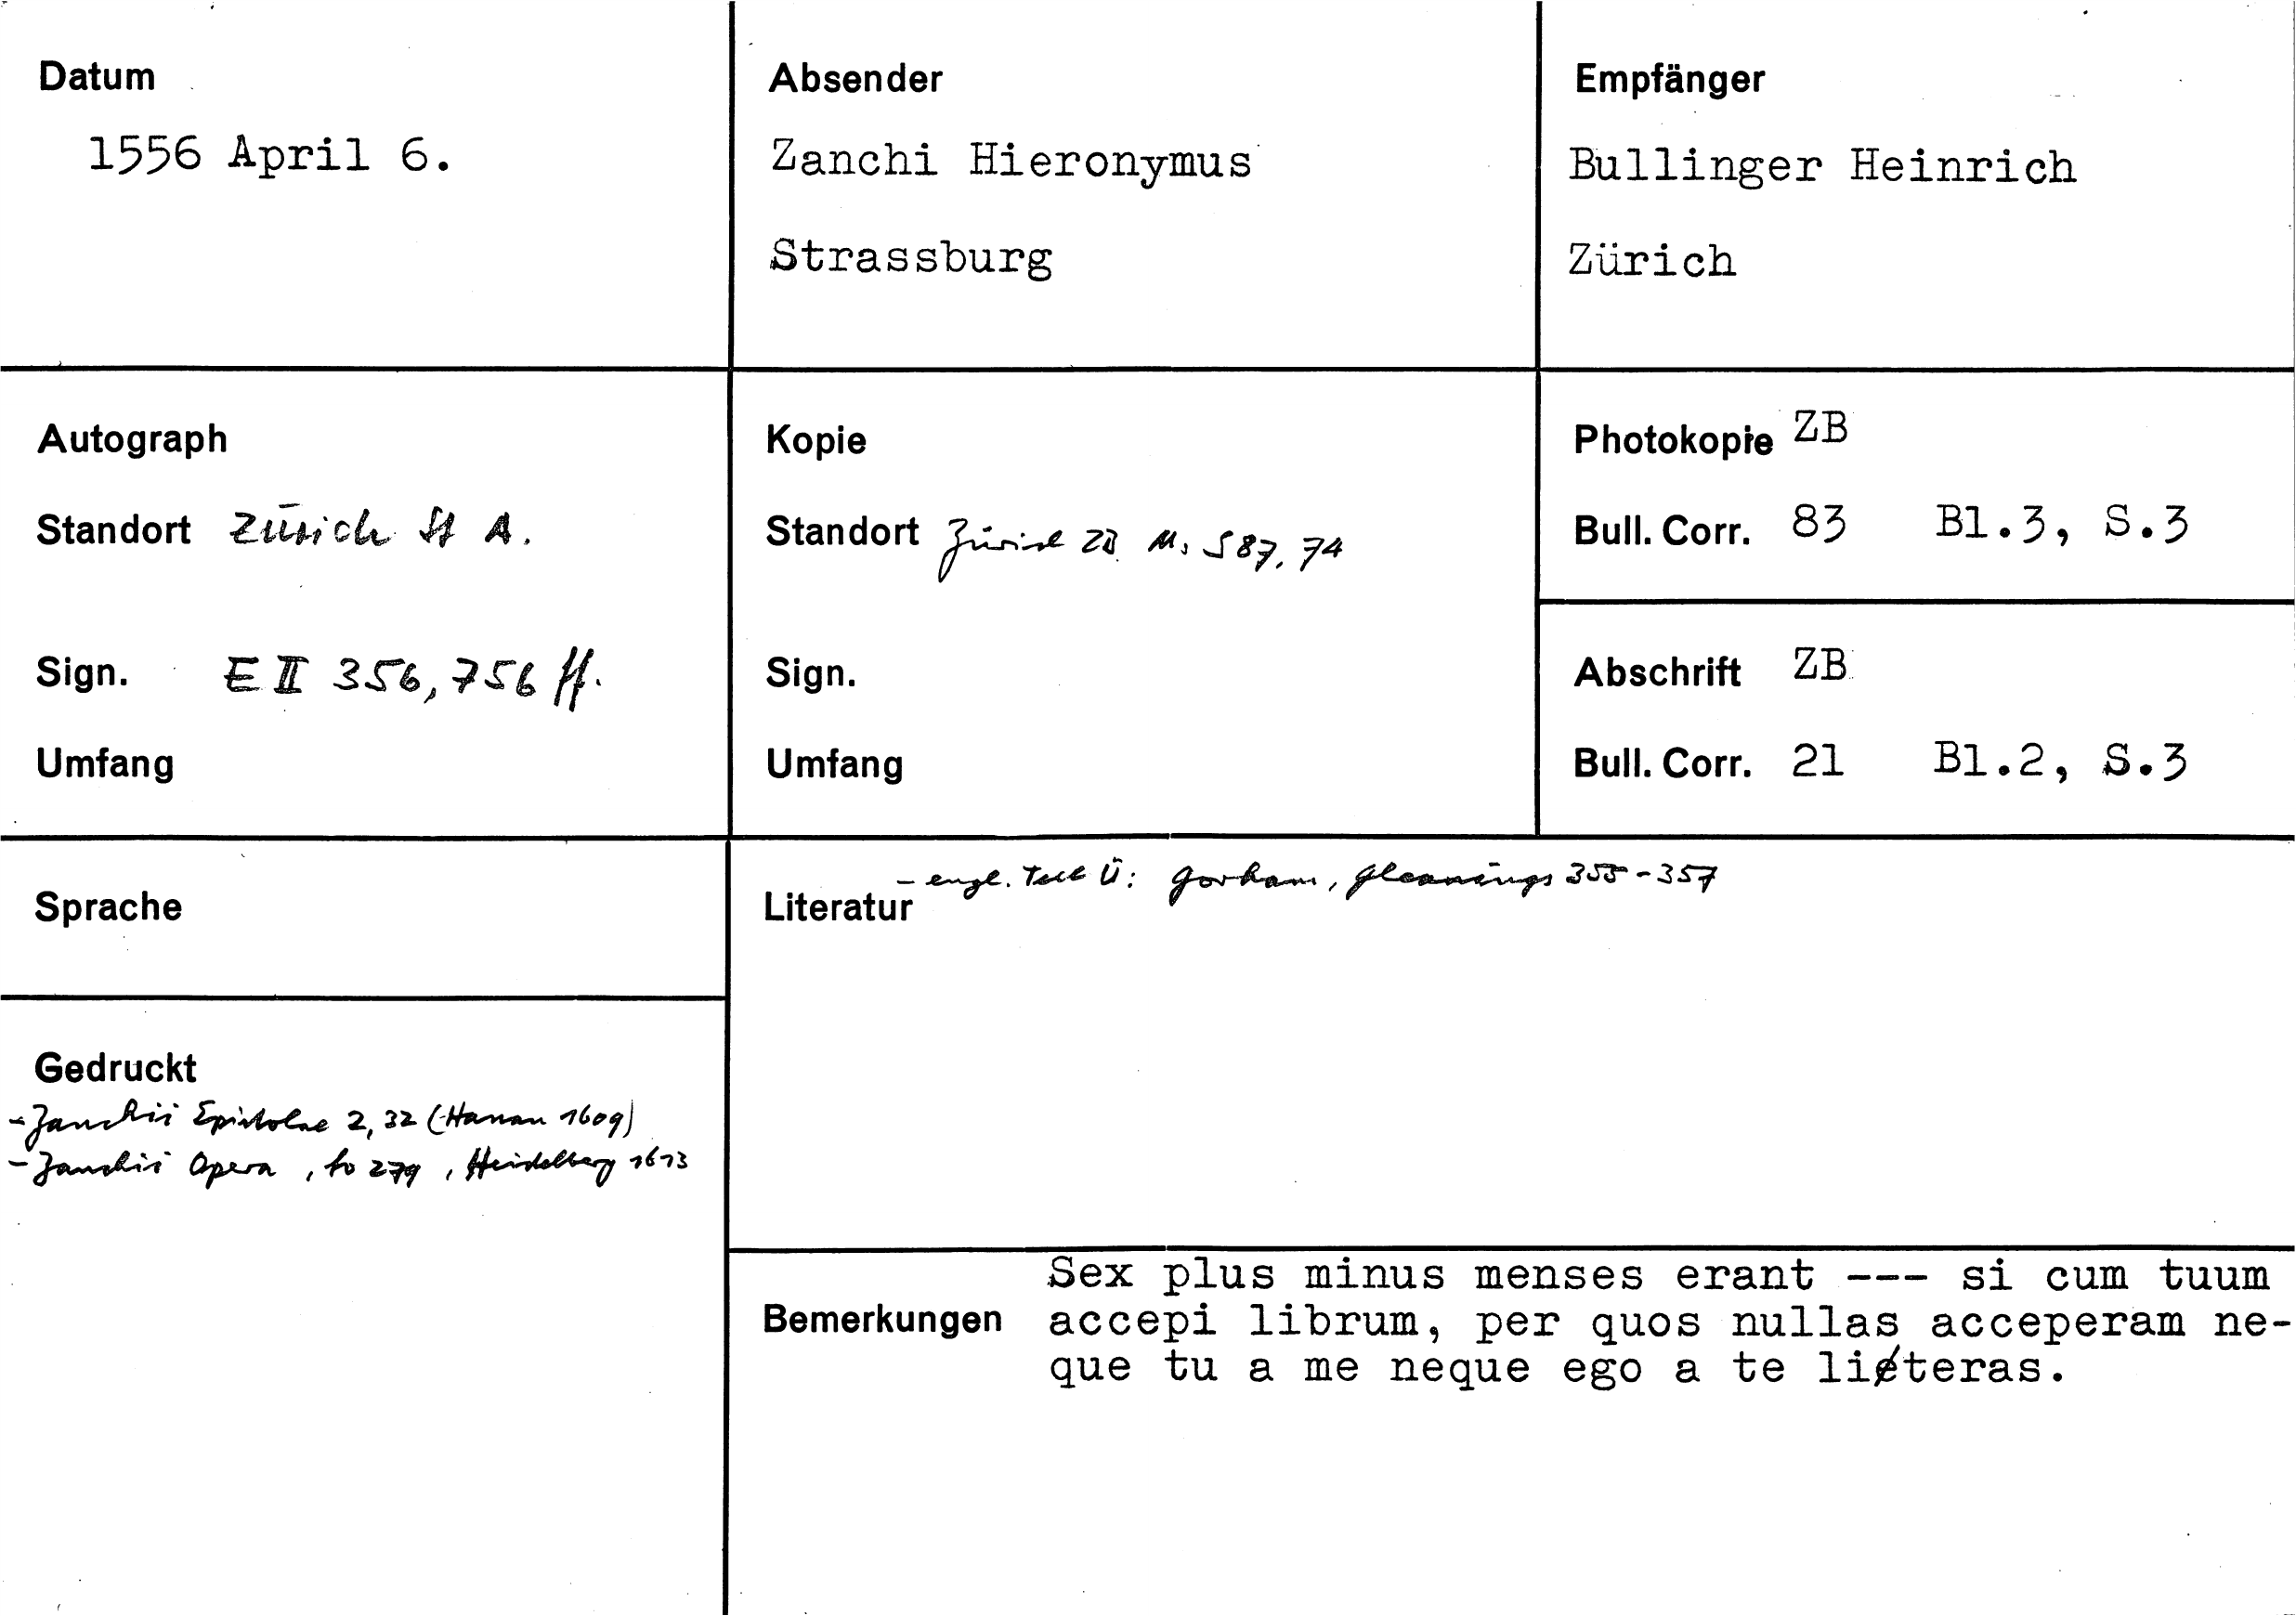 Datum
1556 April 6.
Absender
Zanchi Hieronymus
Strassburg
Empfänger
Bullinger Heinrich
Zürich
Autograph
Standort Zürich St A.
Sign. E II 356, 756 ff.
Umfang
Kopie
Standort Zürich ZB Ms S 87, 74
Sign.
Umfang
Photokopie ZB
Bull. Corr. 83 Bl.3, S.3
Abschrift ZB
Bull. Corr. 21 Bl.2, S.3
Sprache
Gedruckt
- Zanchii Epistolae 2, 32 (Hanau 1609)
- Zanchii Opera, to 279, Heidelberg 1613
- engl. Teil Ü: Gorham, Gleanings 355-357
Literatur
Sex plus minus menses erant --- si cum tuum
Bemerkungen accepi librum, per quos nullas acceperam ne-
que tu a me neque ego a te litteras.